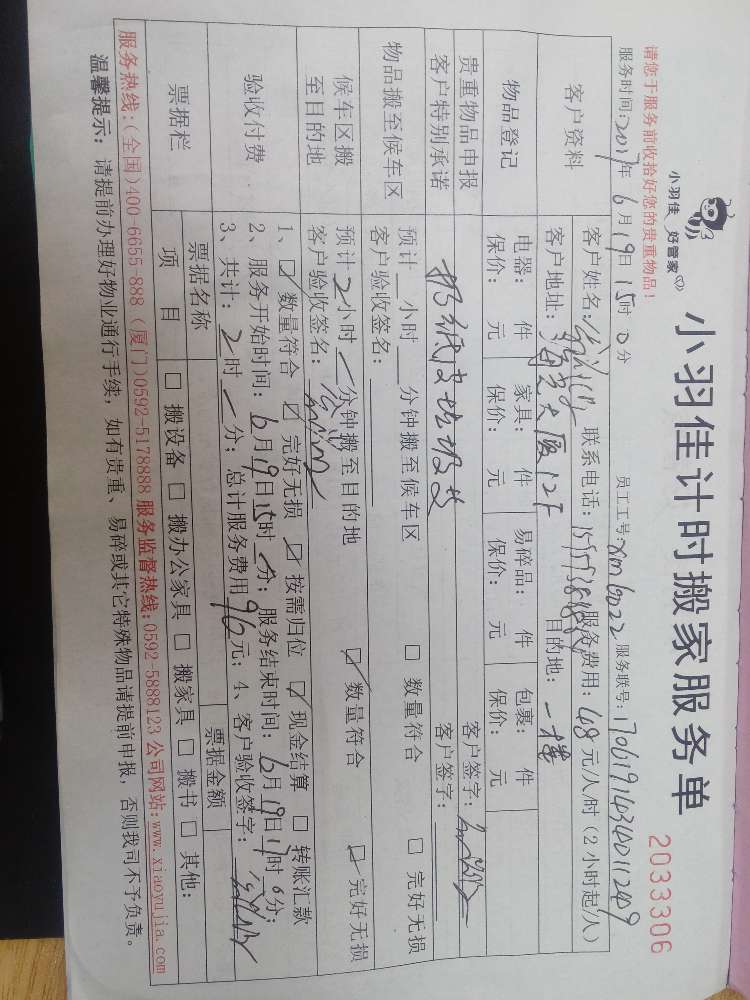 小羽佳 好管家
小羽佳计时搬家服务单
2033306
请您于服务前收拾好您的贵重物品！
服务时间：2017年 6月 19日 15时 0分 员工工号：xm6022 服务联号：
客户资料
客户姓名： 联系电话： 服务费用：48元/人/时（2小时起/人）
客户地址： 大厦12F 目的地：一楼
物品登记
电器： 件 家具： 件 易碎品： 件 包裹： 件
保价： 元 保价： 元 保价： 元 保价： 元
贵重物品申报 客户签字：
客户特别承诺 客户签字：
物品搬至候车区
预计 小时 分钟搬至候车区 □ 数量符合 □ 完好无损
客户验收签名：
候车区搬至目的地
预计2小时 分钟搬至目的地 ☑ 数量符合 ☑ 完好无损
客户验收签名：
验收付费
1、☑ 数量符合 ☑ 完好无损 ☑ 按需归位 ☑ 现金结算 □ 转账汇款
2、服务开始时间：6月19日15时 分；服务结束时间：6月19日17时0分；
3、共计：2时 分；总计服务费用 96元；4、客户验收签字：
票据栏
票据名称 票据金额
项目 □ 搬设备 □ 搬办公家具 □ 搬家具 □ 搬书 □ 其他：
服务热线：（全国）400-6655-888（厦门）0592-5178888 服务监督热线：0592-5888123 公司网站：www.xiaoyujia.com
温馨提示：请提前办理好物业通行手续，如有贵重、易碎或其它特殊物品请提前申报，否则我司不予负责。